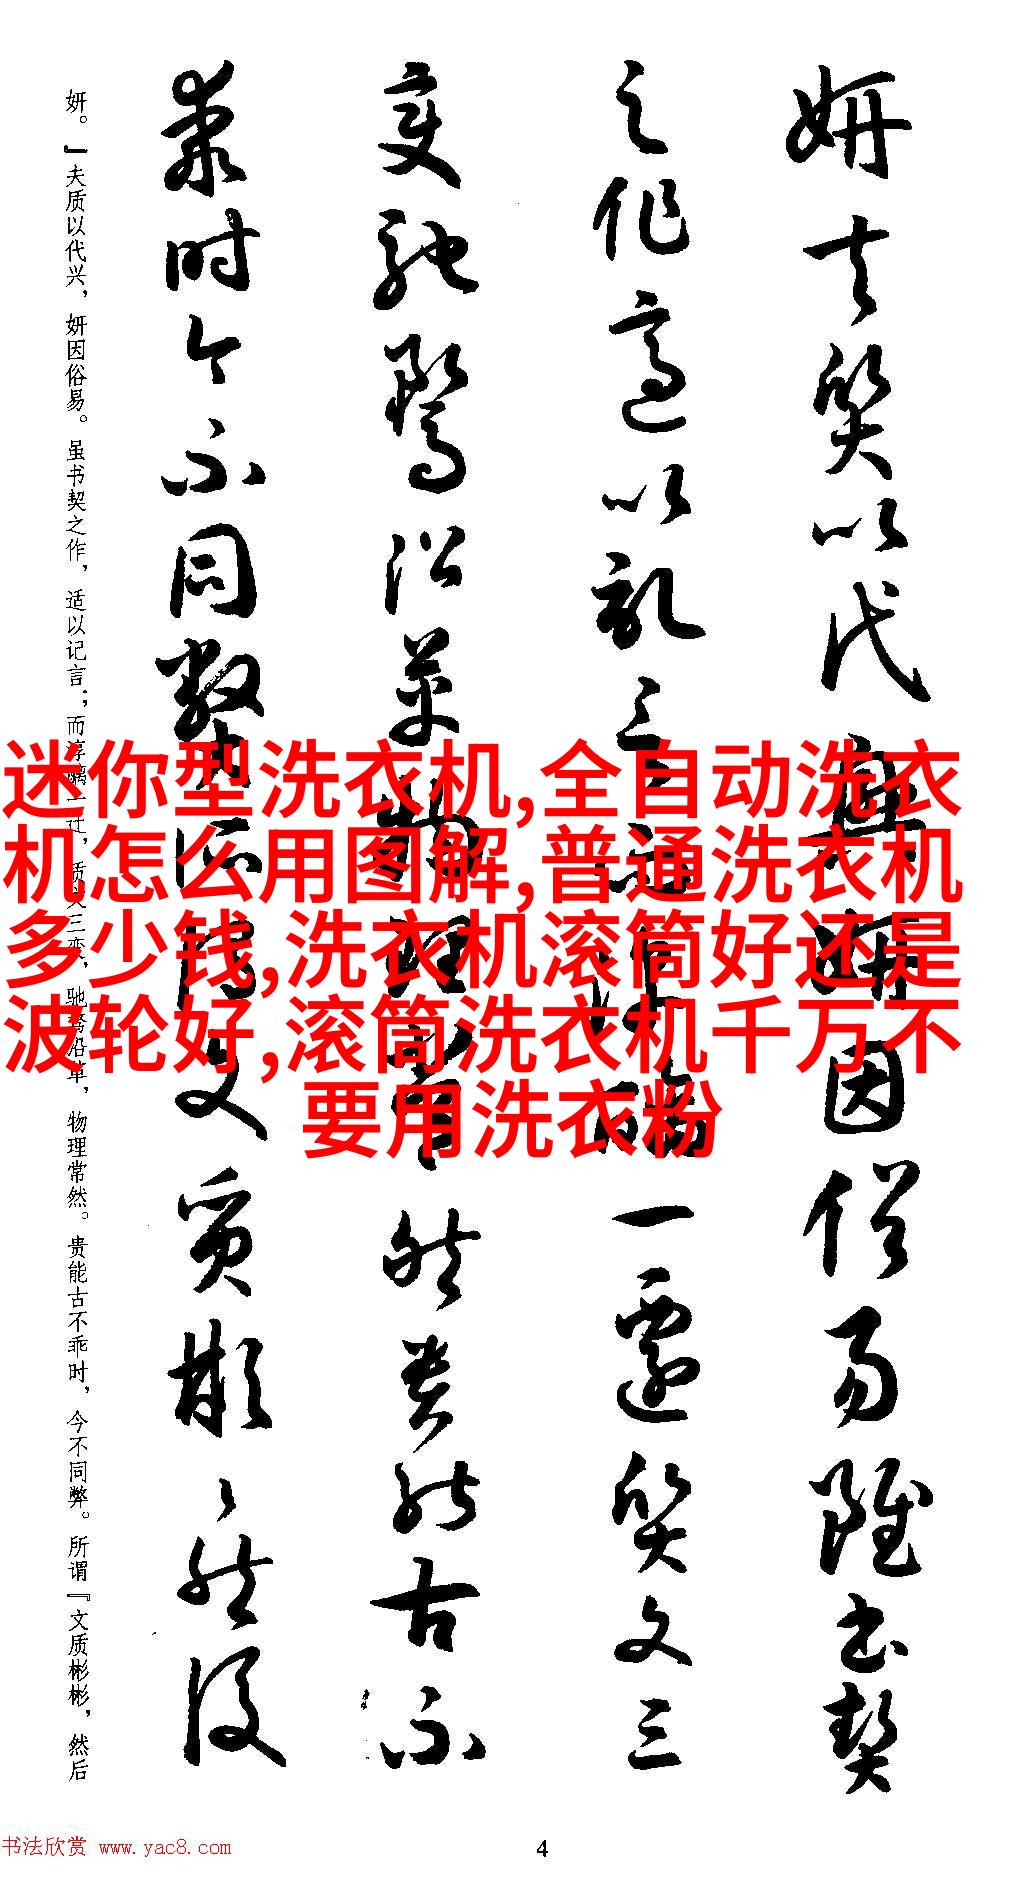 妍夫質以代興妍因俗易雖書契
之作適以記言而淳醨一遷質文三
變馳鶩沿革物理常然貴能古不
乖時今不同弊所謂文質彬彬然後
妍。』夫质以代兴，妍因俗易。虽书契之作，适以记言；而淳醨一迁，质文三变，驰骛沿革，物理常然。贵能古不乖时，今不同弊。所谓『文质彬彬，然后
迷你型洗衣机,全自动洗衣
机怎么用图解,普通洗衣机
多少钱,洗衣机滚筒好还是
波轮好,滚筒洗衣机千万不
要用洗衣粉
书法欣赏 www.yac8.com
4